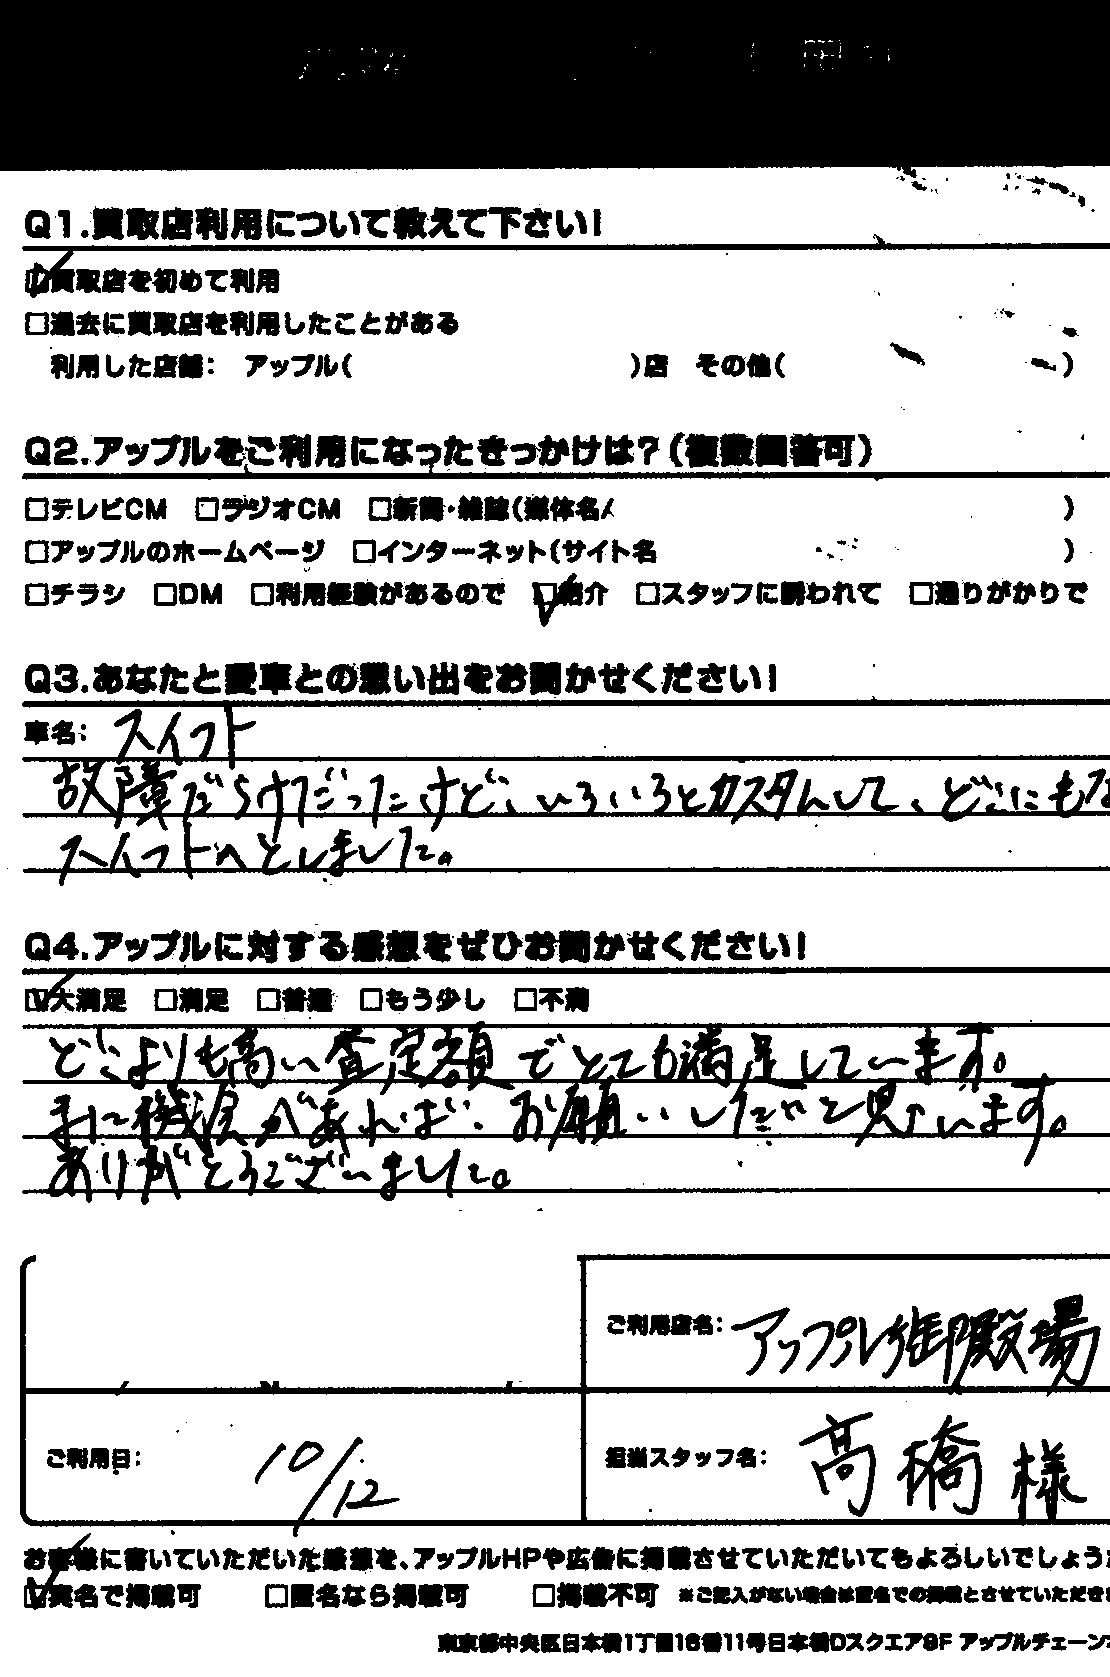 Q1.買取店利用について教えて下さい!
☑買取店を初めて利用
□過去に買取店を利用したことがある
利用した店舗: アップル( )店 その他( )
Q2.アップルをご利用になったきっかけは?(複数回答可)
□テレビCM □ラジオCM □新聞・雑誌(媒体名 )
□アップルのホームページ □インターネット(サイト名 )
□チラシ □DM □利用経験があるので ☑紹介 □スタッフに誘われて □通りがかりで
Q3.あなたと愛車との思い出をお聞かせください!
車名: スイフト
故障だらけだったけど、いろいろとカスタムして、どこにもな
スイフトへとしました。
Q4.アップルに対する感想をぜひお聞かせください!
☑大満足 □満足 □普通 □もう少し □不満
どこよりも高い査定額でとても満足しています。
また機会があれば、お願いしたいと思います。
ありがとうございました。
ご利用店名: アップル御殿場
ご利用日: 10/12
担当スタッフ名: 高橋様
お客様に書いていただいた感想を、アップルHPや広告に掲載させていただいてもよろしいでしょうか
☑実名で掲載可 □匿名なら掲載可 □掲載不可 ※ご記入がない場合は匿名での掲載とさせていただき
東京都中央区日本橋1丁目16番11号日本橋Dスクエア8F アップルチェーン